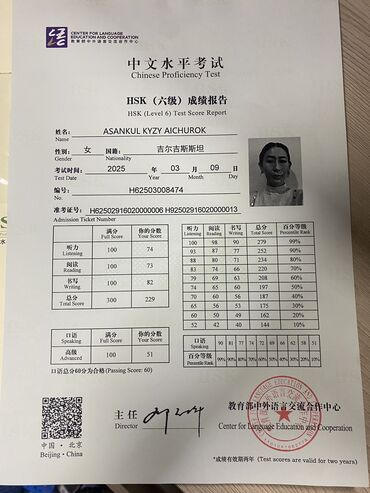 CENTER FOR LANGUAGE
EDUCATION AND COOPERATION
教育部中外语言交流合作中心
中文水平考试
Chinese Proficiency Test
HSK（六级）成绩报告
HSK (Level 6) Test Score Report
姓名: ASANKUL KYZY AICHUROK
Name
性别: 女 国籍: 吉尔吉斯斯坦
Gender Nationality
考试时间: 2025 年 03 月 09 日
Test Date Year Month Day
编号: H62503008474
No.
准考证号: H62502916020000006 H92502916020000013
Admission Ticket Number
满分 你的分数
Full Score Your Score
听力 Listening 100 74
阅读 Reading 100 73
书写 Writing 100 82
总分 Total Score 300 229
听力 阅读 书写 总分 百分等级
Listening Reading Writing Total Score Percentile Rank
100 98 90 279 99%
93 87 77 252 90%
88 80 71 234 80%
83 74 66 220 70%
79 69 63 208 60%
74 64 60 197 50%
70 60 56 187 40%
65 56 53 175 30%
60 50 48 161 20%
52 42 40 144 10%
满分 你的分数
Full Score Your Score
口语 Speaking
高级 Advanced 100 51
口语总分60分为合格 (Passing Score: 60)
口语 Speaking 90 81 77 74 72 69 66 62 58 51
百分等级 Percentile Rank 99% 90% 80% 70% 60% 50% 40% 30% 20% 10%
主任
Director
教育部中外语言交流合作中心
Center for Language Education and Cooperation
中国·北京
Beijing·China
*成绩有效期两年 (Test scores are valid for two years)